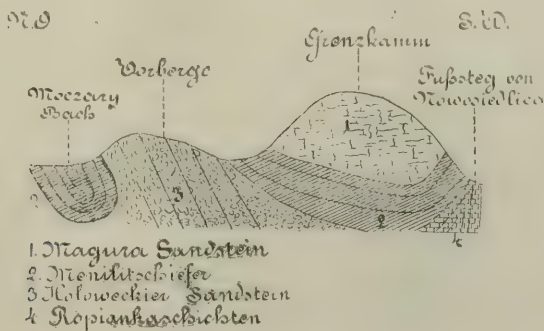 N.O
S.W.
Grenzkamm
Vorberge
Moczary
Bach
Fußsteg von
Nowosiedlica
1
3
2
4
1. Magura Sandstein
2. Menilitschiefer
3 Holoweckier Sandstein
4 Ropiankaschichten